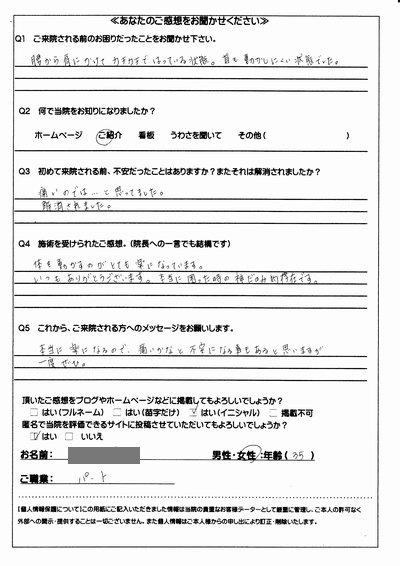 ≪あなたのご感想をお聞かせください≫
Q1 ご来院される前のお困りだったことをお聞かせ下さい。
腰から肩にかけて カチカチで はっている状態。首も動かしにくい状態でした。
Q2 何で当院をお知りになりましたか?
ホームページ ご紹介 看板 うわさを聞いて その他( )
Q3 初めて来院される前、不安だったことはありますか?またそれは解消されましたか?
痛いのでは…と思ってました。
解消されました。
Q4 施術を受けられたご感想。(院長への一言でも結構です)
体を動かすのがとても楽になっています。
いつもありがとうございます。本当に困った時の神だのみ的存在です。
Q5 これから、ご来院される方へのメッセージをお願いします。
本当に楽になるので、痛いかなと不安になる事もあると思いますが
一度ぜひ。
頂いたご感想をブログやホームページなどに掲載してもよろしいでしょうか?
□はい(フルネーム) □はい(苗字だけ) ☑はい(イニシャル) □掲載不可
匿名で当院を評価できるサイトに投稿させていただいてもよろしいでしょうか?
☑はい □いいえ
お名前: 男性・女性:年齢(35)
ご職業: パート
【個人情報保護について】この用紙にご記入いただきました情報は当院の貴重なお客様データーとして厳重に管理し、ご本人の許可なく
外部への開示・提供することは一切ございません。また個人情報はご本人様からの申し出により訂正・削除いたします。